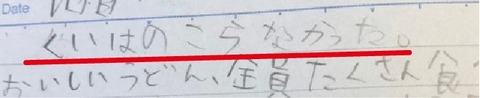 Date
くいはのこらなかった。
おいしいうどん、全員たくさん食